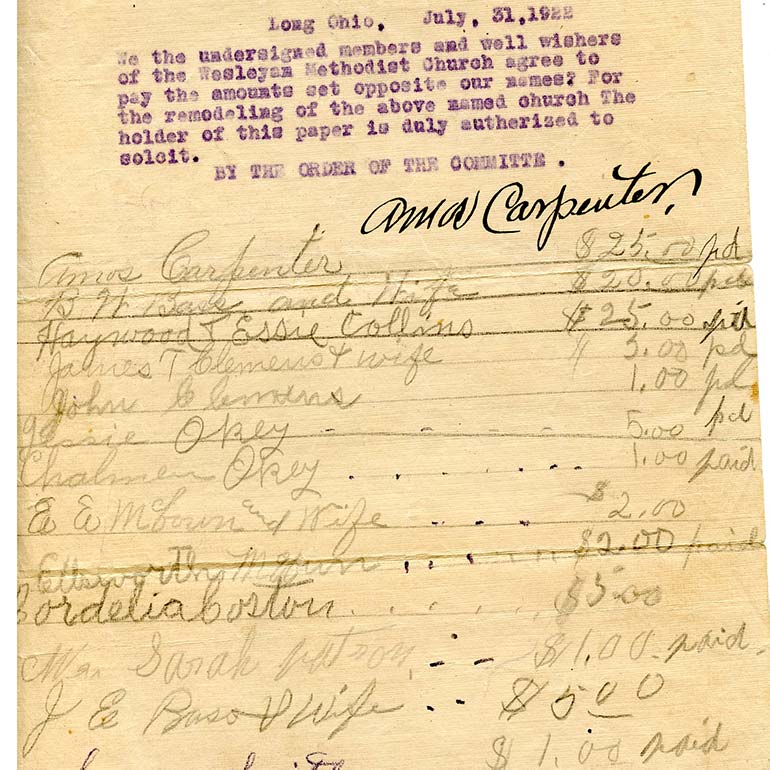 Long Ohio, July, 31,1922
We the undersigned members and well wishers
of the Wesleyan Methodist Church agree to
pay the amounts set opposite our names? For
the remodeling of the above named church The
holder of this paper is duly autherized to
soloit.
BY THE ORDER OF THE COMMITTE .
Amos Carpenter,
Amos Carpenter $25.00 pd
B W Bass and Wife $20.00 pd
Haywood & Essie Collins $25.00 pd
James T Clemens & wife $ 5.00 pd
John Clemens 1.00 pd
Jessie Okey - - - - 5.00 pd
Chalmer Okey . . . . . . . . 1.00 paid
E E McGown and Wife . . . . $2.00
Ellsworth McGown . . . . $2.00 paid
Cordelia Coston. . . . . . $5.00
Mrs Sarah - - - $1.00. paid.
J E Bass & Wife - - $5.00
$1.00 paid